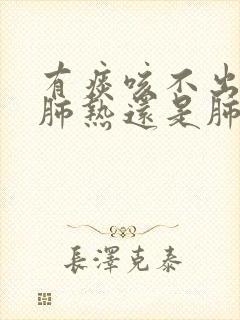 有痰咳不出
肺熱還是肺
長澤克泰